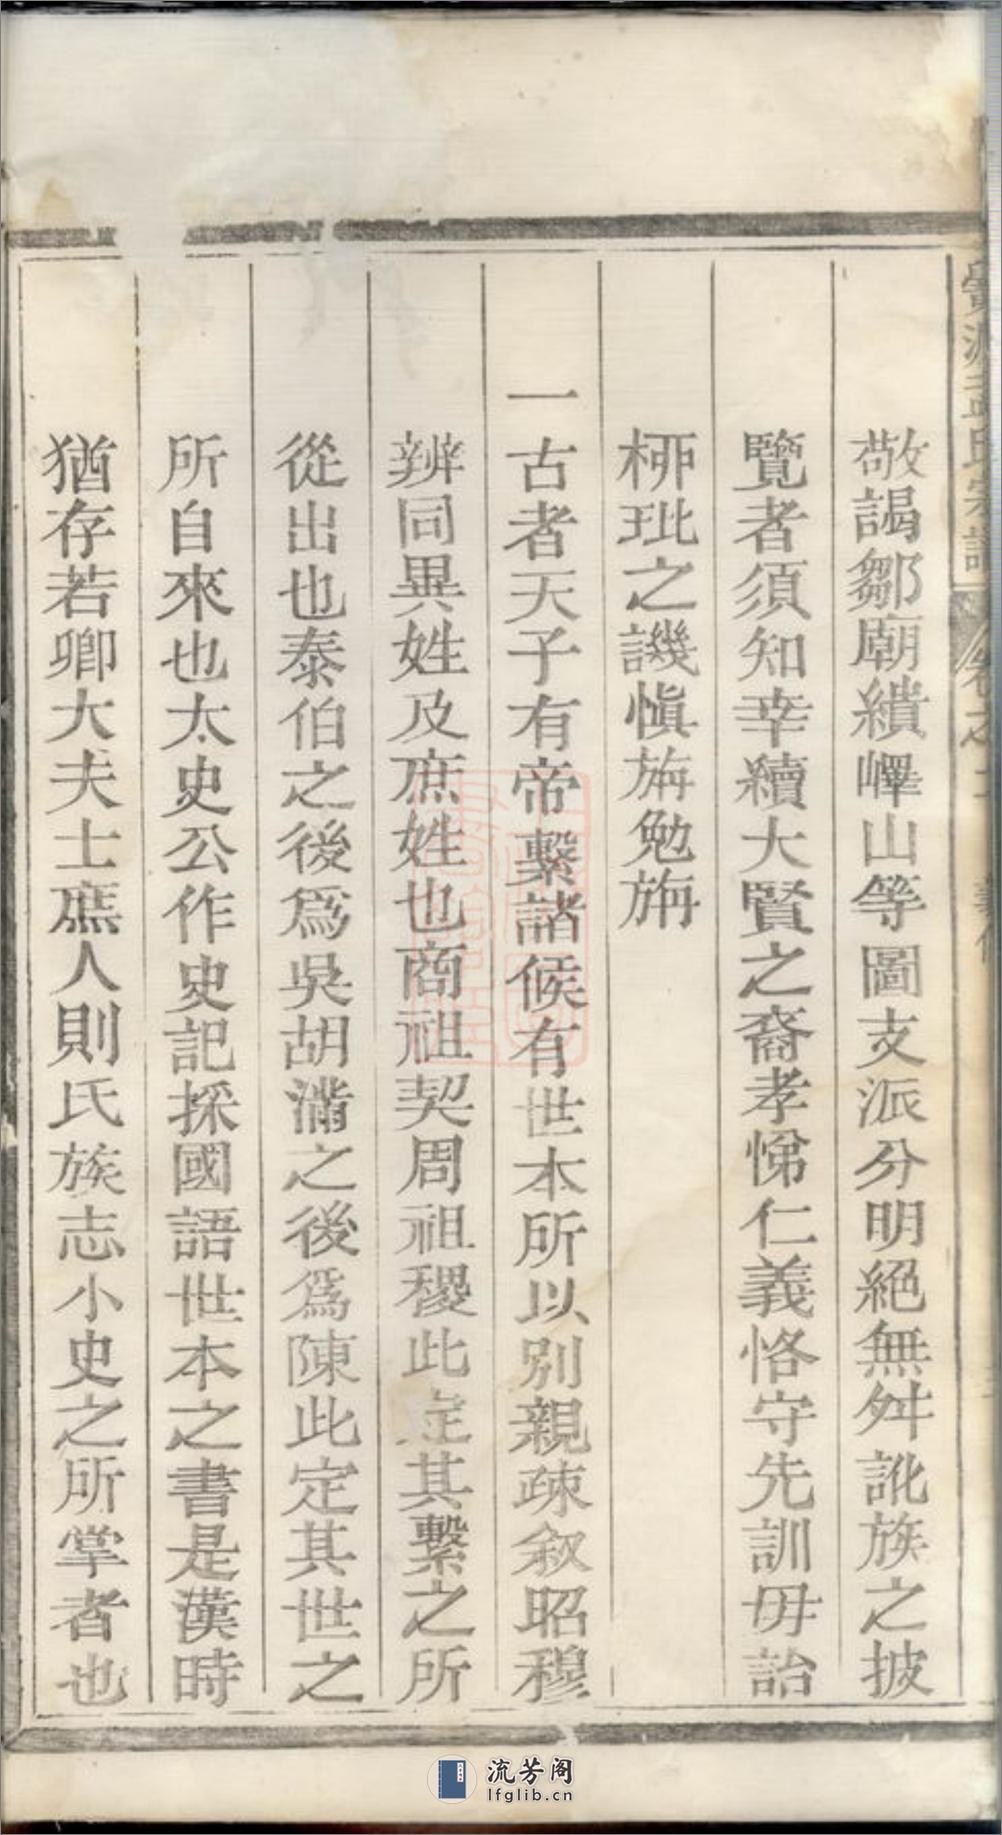 敬謁鄒廟繢嶧山等圖支派分明絕無舛訛族之披
覽者須知幸續大賢之裔孝悌仁義恪守先訓毋詒
桺玭之譏愼旃勉旃
一古者天子有帝繫諸候有世本所以別親疎叙昭穆
辨同異姓及庶姓也商祖契周祖稷此定其繫之所
從出也泰伯之後爲吳胡滿之後爲陳此定其世之
所自來也太史公作史記採國語世本之書是漢時
猶存若卿大夫士庶人則氏族志小史之所掌者也
流芳阁
lfglib.cn